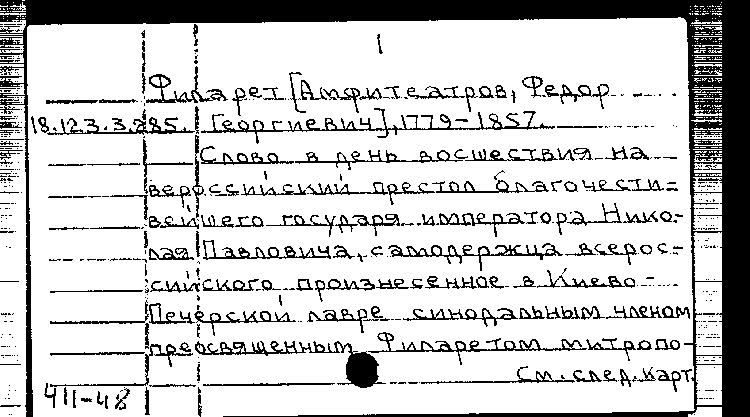 1
Филарет [Амфитеатров, Федор
18.123.3.285. Георгиевич], 1779-1857.
Слово в день восшествия на
вероссийский престол благочести=
вейшего государя императора Нико-
лая Павловича, самодержца всерос-
сийского произнесенное в Киево-
Печерской лавре синодальным членом
преосвященным Филаретом митропо-
См. след. карт.
411-48